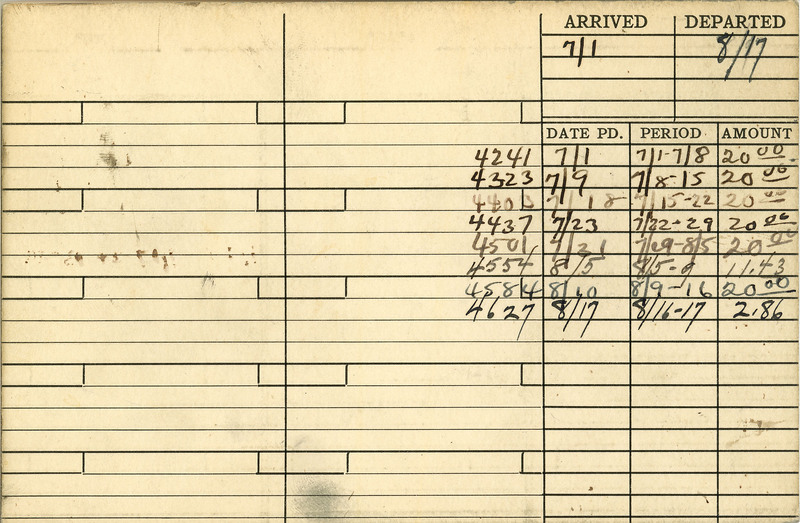 ARRIVED DEPARTED
7/1 8/17
DATE PD. PERIOD AMOUNT
4241 7/1 7/1-7/8 20 00
4323 7/9 7/8-15 20 00
4403 7/18 7/15-22 20 00
4437 7/23 7/22-29 20 00
4501 7/31 7/29-8/5 20 00
4554 8/5 8/5-9 11.43
4584 8/10 8/9-16 20 00
4627 8/17 8/16-17 2.86